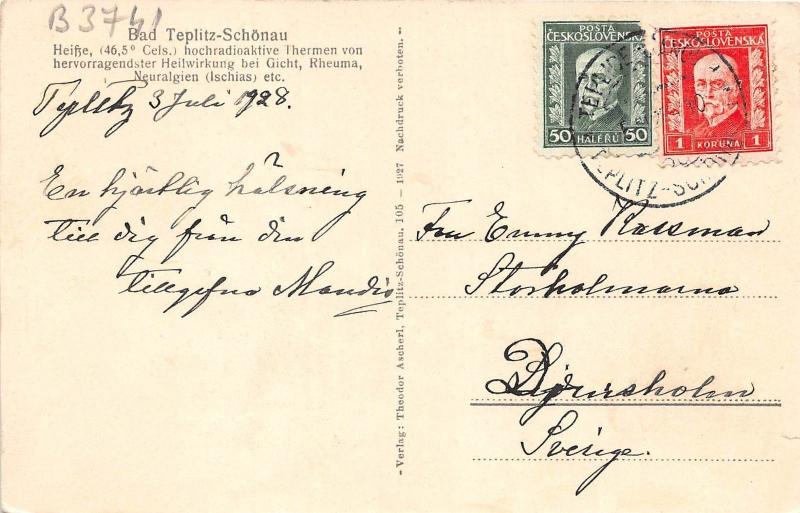 B 3741
Bad Teplitz-Schönau
Heiße, (46,5° Cels.) hochradioaktive Thermen von
hervorragendster Heilwirkung bei Gicht, Rheuma,
Neuralgien (Ischias) etc.
Teplitz 3 Juli 1928.
En hjärtlig hälsning
till dig från din
tillgifna
- Verlag: Theodor Ascherl, Teplitz-Schönau. 105 - 1927 Nachdruck verboten. -
POSTA
ČESKOSLOVENSKÁ
50 HALÉŘŮ 50
POSTA
ČESKOSLOVENSKÁ
1 KORUNA 1
TEPLITZ-SCHÖN
Fru Emmy Kassman
Storholmarna
Djursholm
Sverige.